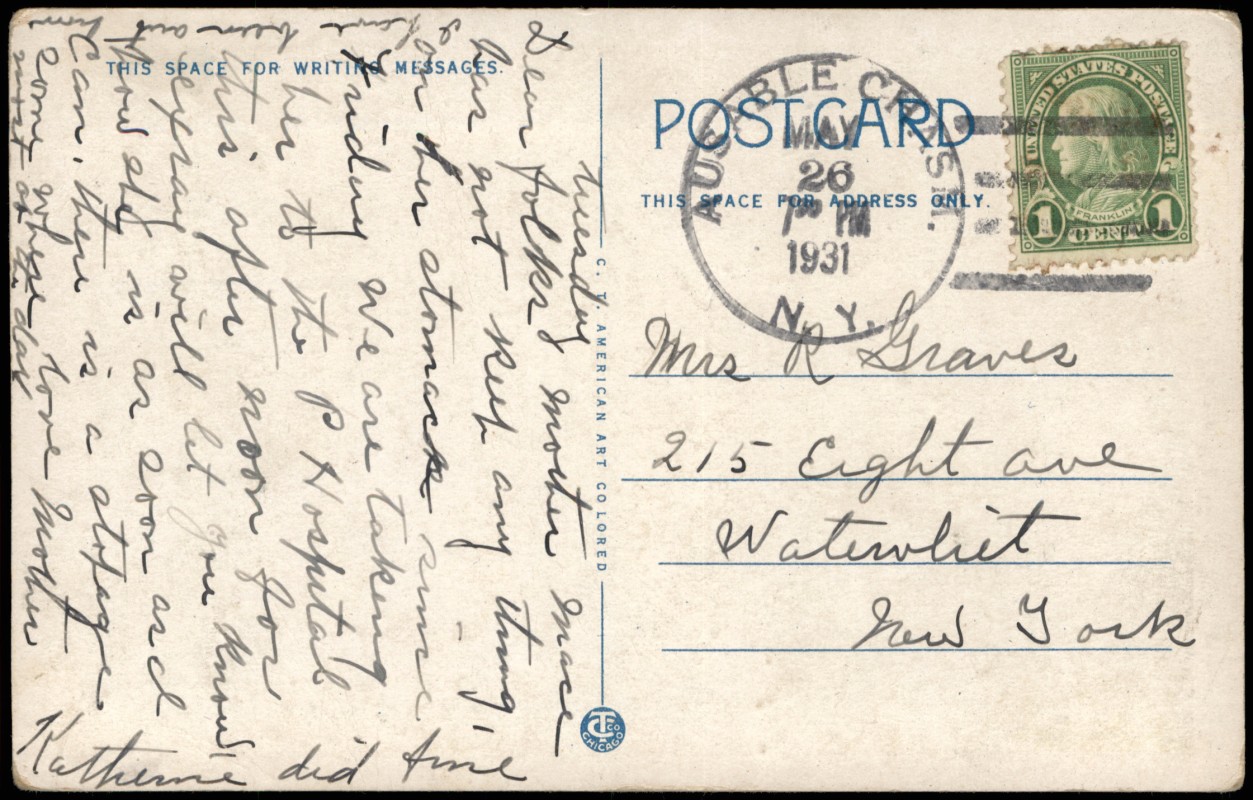 THIS SPACE FOR WRITING MESSAGES.
Tuesday
Dear folks Mother Mace
has not kept any thing
on her stomack since
Friday We are taking
her to the P Hospital
this after noon for
exray will let you know
how she is as soon as I
Can, there is a stopage
some where love Mother
I have
been out
from
most of the day
Katherine did fine
C. T. AMERICAN ART COLORED
CT CO CHICAGO
POST CARD
THIS SPACE FOR ADDRESS ONLY.
AUSABLE CHASM.
MAY
26
7 PM
1931
N. Y.
UNITED STATES POSTAGE
FRANKLIN
1 CENT 1
Mrs R Graves
215 Eight ave
Watervliet
New York